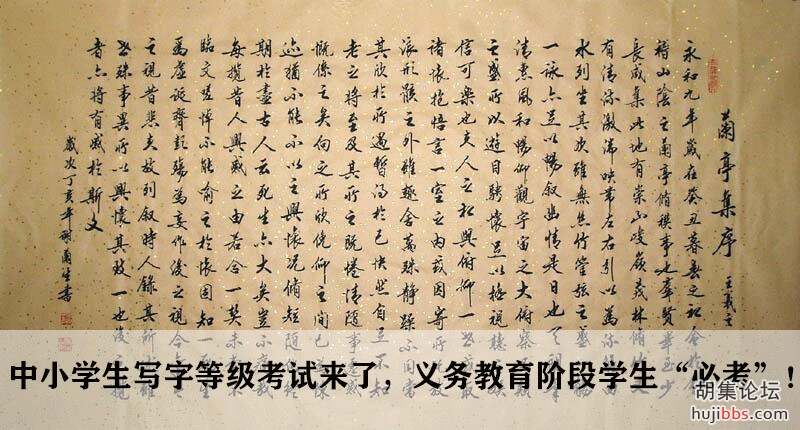 蘭亭集序 王羲之
永和九年歲在癸丑暮春之初會於
稽山陰之蘭亭脩禊事也羣賢畢至少
長咸集此地有崇山峻嶺茂林脩竹
有清流激湍映帶左右引以為流
水列坐其次雖無絲竹管弦之盛
一詠亦足以暢敘幽情是日也天
清惠風和暢仰觀宇宙之大俯察
之盛所以遊目騁懷足以極視聽
信可樂也夫人之相與俯仰一世或取
諸懷抱悟言一室之內或因寄所
浪形骸之外雖趣舍萬殊靜躁不同
其欣於所遇暫得於己快然自足不
老之將至及其所之既惓情隨事遷
慨係之矣向之所欣俛仰之間已
迹猶不能不以之興懷況脩短隨化
期於盡古人云死生亦大矣豈不
每攬昔人興感之由若合一契未嘗
臨文嗟悼不能喻之於懷固知一
為虛誕齊彭殤為妄作後之視今
之視昔悲夫故列敘時人錄其所述
世殊事異所以興懷其致一也後之
者亦將有感於斯文
歲次丁亥年
中小学生写字等级考试来了，义务教育阶段学生“必考”！
胡集论坛
hujibbs.com